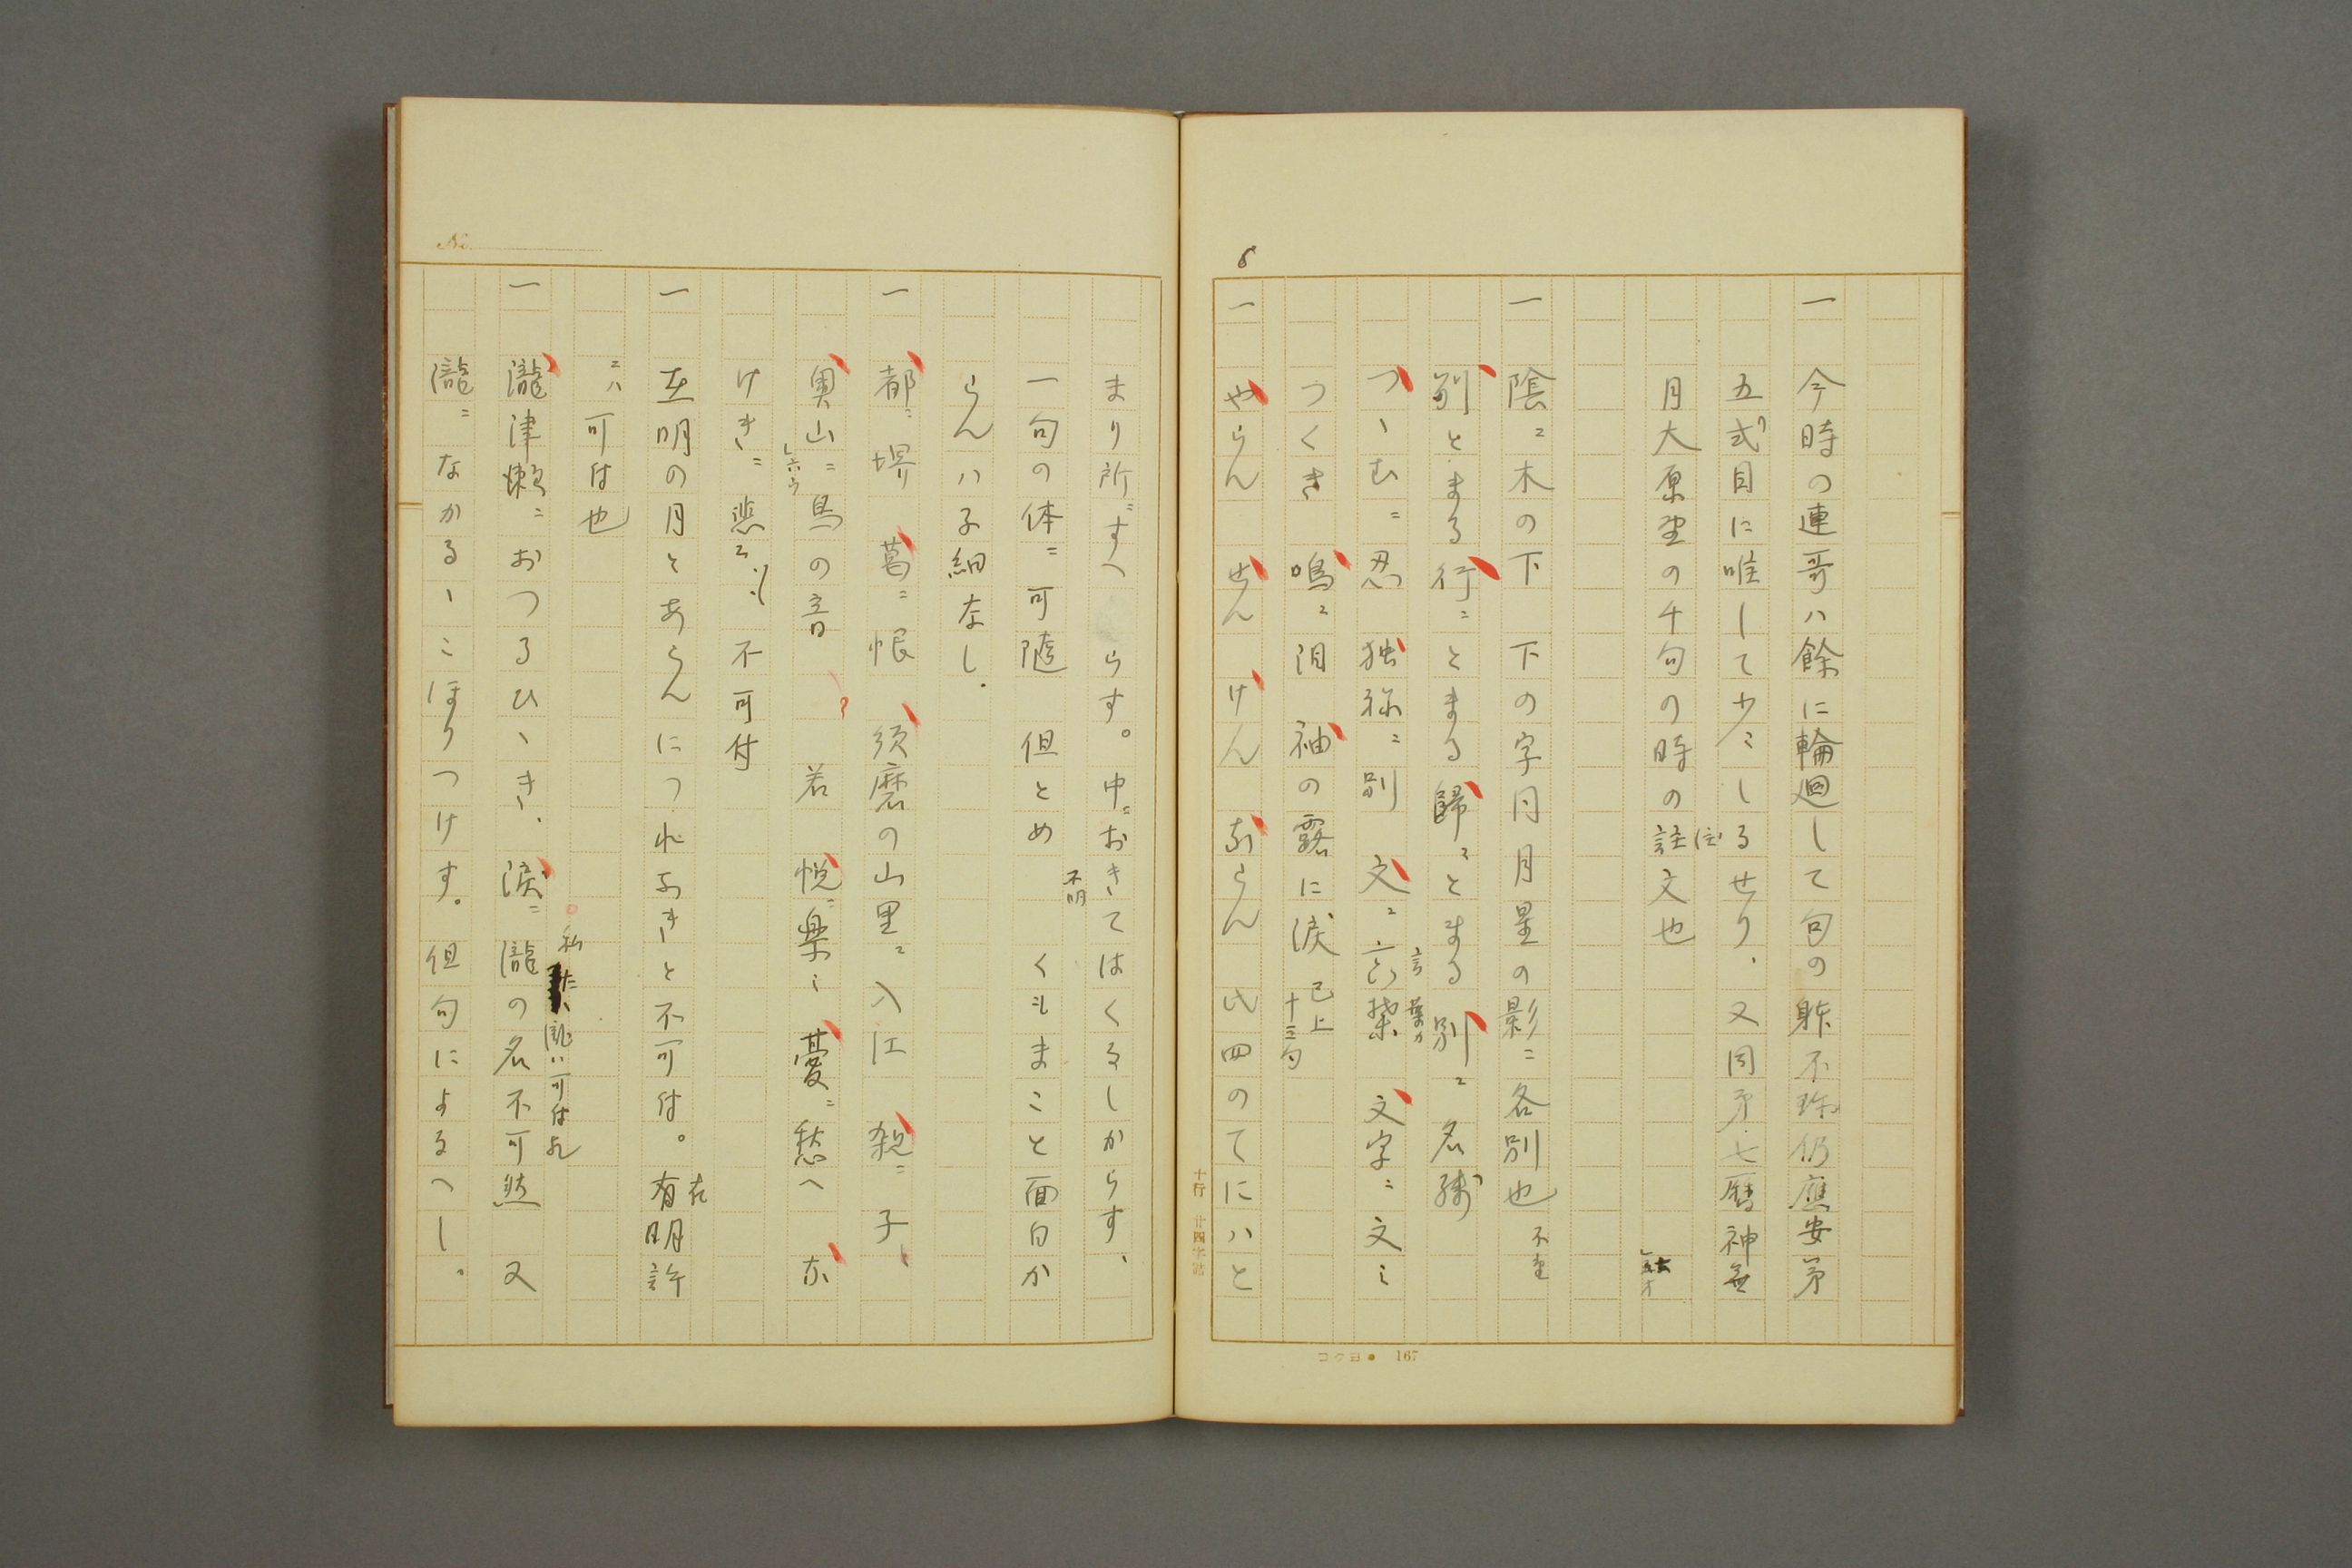 6
一 今時の連哥ハ餘に輪廻して句の躰不珎仍應安第
五式目に准して少〻しるせり、又同第七暦神無
月大原野の千句の時の註文也
一 陰ニ木の下 下の字月月星の影ニ各別也
別とまる行ニとまる歸ニとまる別ニ名残
つゝむニ忍 独祢ニ別 文ニ言葉 文字ニ文〻
つくき 鳴ニ泪 袖の露に涙 已上十三句
一 やらん せん けん ならん 此四のてにハと
十行 廿四字詰
コクヨ 167
No.
まり所ニすへ らす。中ニおきてはくるしからす、
不明
一句の体ニ可随 但とめ くもまこと面白か
らんハ子細なし.
一 都ニ堺 葛ニ恨 須磨の山里ニ入江 殺ニ子
奥山ニ馬の音 若 悦ニ楽〻 憂ニ愁へ な
けきニ悲 不可付
一 在明の月とあらんにつれなきと不可付。有明許
在
ニハ可付也
一 瀧津瀬ニおつるひゝき、涙ニ瀧の名不可然 又
私 瀧ハ可付歟
瀧ニなかるゝこほりつけす。但句によるへし。